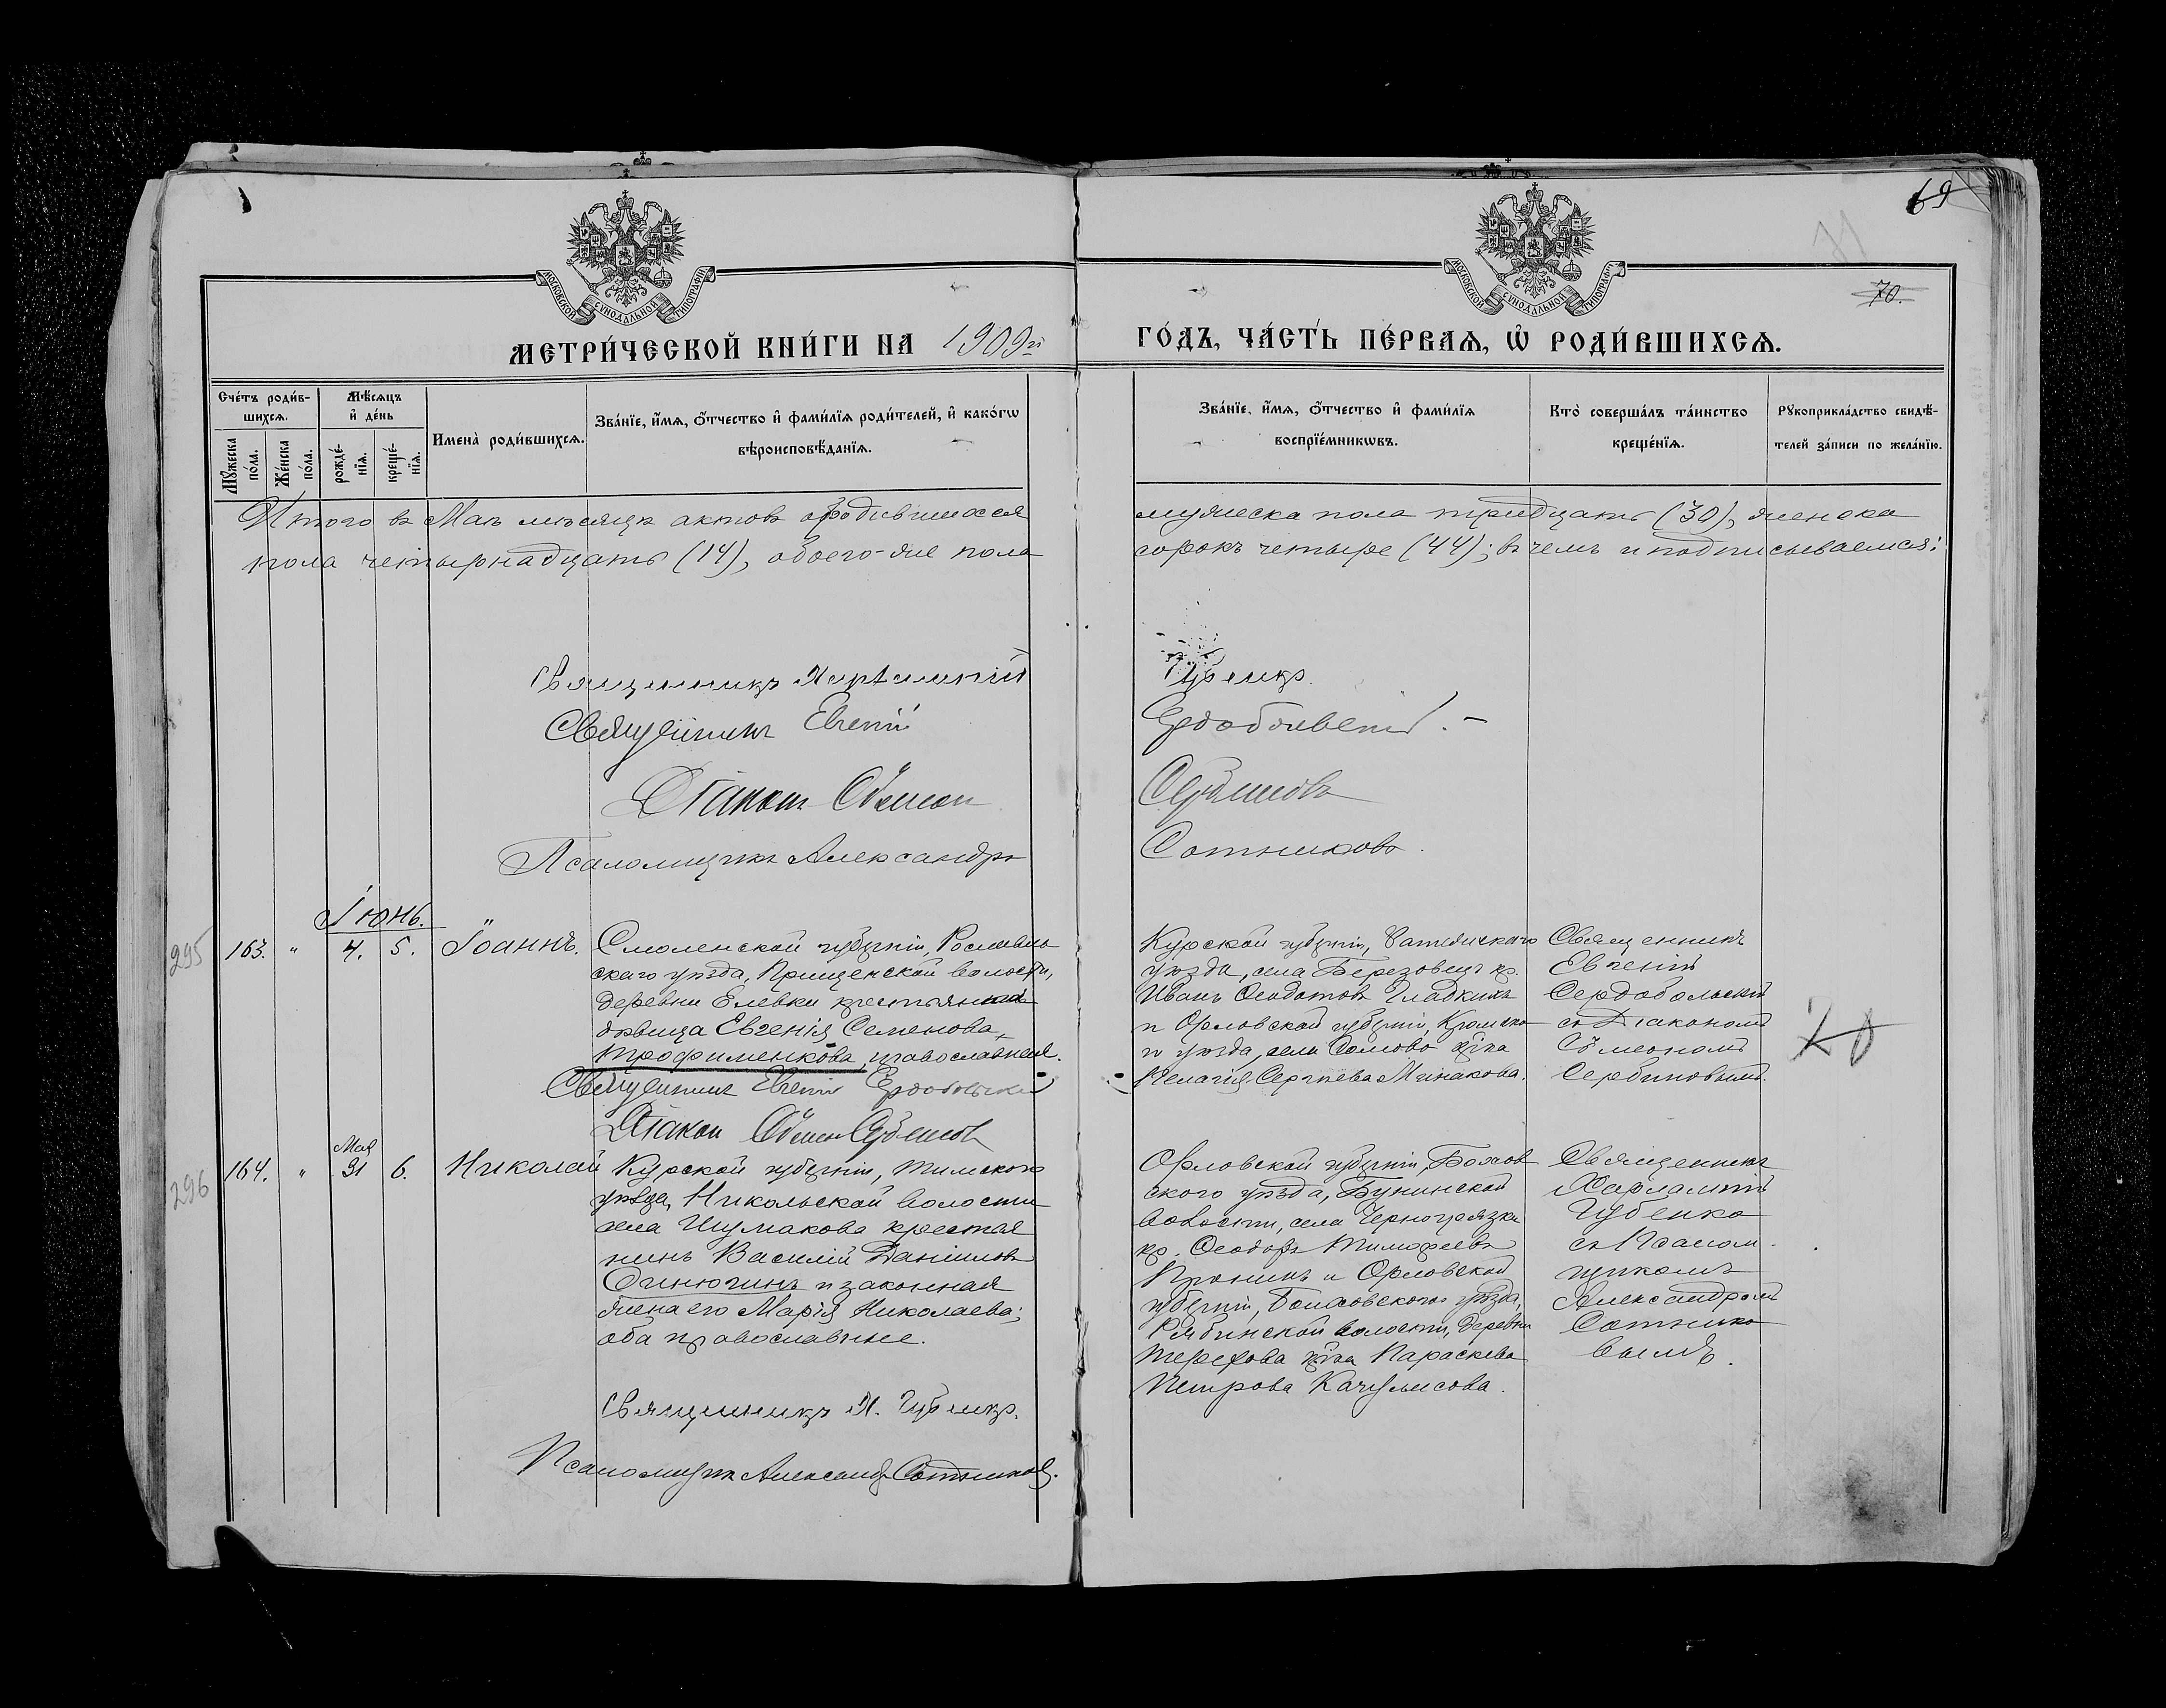 69
70.
МОСКОВСКОЙ СѴНОДАЛЬНОЙ ТИПОГРАФІИ
МОСКОВСКОЙ СѴНОДАЛЬНОЙ ТИПОГРАФІИ
МЕТРИ́ЧЕСКОЙ КНИ́ГИ НА 1909й
ГО́ДЪ, ЧА́СТЬ ПЕ́РВАѦ, Ѡ҆ РОДИ́ВШИХСѦ.
Сче́тъ роди́в-
шихсѧ.
Мꙋ́жеска по́ла.
Же́нска по́ла.
Мѣ́сѧцъ
и҆ де́нь
рожде́-
нїѧ.
креще́-
нїѧ.
Имена̀ роди́вшихсѧ.
Зва́нїе, и҆́мѧ, ѻ҆́тчество и҆ фами́лїѧ роди́телей, и҆ како́гѡ
вѣроисповѣ́данїѧ.
Зва́нїе, и҆́мѧ, ѻ҆́тчество и҆ фами́лїѧ
воспрїе́мникѡвъ.
Кто̀ соверша́лъ та́инство
креще́нїѧ.
Рꙋкоприкла́дство свидѣ́-
телей за́писи по жела́нїю.
Итого въ Маѣ мѣсяцѣ актовъ о родившихся
мужеска пола тридцать (30), женска
пола четырнадцать (14), обоего-же пола
сорокъ четыре (44); въ чемъ и подписываемся:
Священникъ Харлампій
Губенко.
Священникъ Евгеній
Сердобольскій. –
Діаконъ Сѵмеон
Сербиновъ
Псаломщикъ Александръ
Сотниковъ.
Іюнь.
295
163. " 4. 5. Іоаннъ.
Смоленской губерніи, Рославль
скаго уѣзда, Прищенской волости,
деревни Елевки крестьянская
дѣвица Евгенія Семенова
Трофименкова, православная.
Священникъ Евгеній Сердобольскій
Діакон Сѵмеон Сербинов
Курской губерніи,
уѣзда, села Березовецъ кр.
Иванъ Ѳеодотовъ Гладкихъ
и Орловской губерніи, Кромска
го уѣзда, села Сомово кр-ка
Пелагія Сергѣева Минакова.
Священникъ
Евгеній
Сердобольскій
съ Діакономъ
Сѵмеономъ
Сербиновымъ.
70
296
Мая
164. " 31 6. Николай
Курской губерніи, Тимскаго
уѣзда, Никольской волости
села Шумакова крестья
нинъ Василій Даніиловъ
Синюгинъ и законная
жена его Марія Николаева;
оба православные.
Священникъ Х. Губенко.
Псаломщикъ Александръ Сотников.
Орловской губерніи, Болхов
ского уѣзда, Бунинской
волости, села Черногрязка
кр. Ѳеодоръ Тимофеевъ
Пронинъ и Орловской
губерніи, Болховского уѣзда,
Рябинской волости, деревни
Терехова кр-ка Параскева
Петрова
Священникъ
Харлампій
Губенко
съ Псалом-
щикомъ
Александромъ
Сотнико
вымъ.